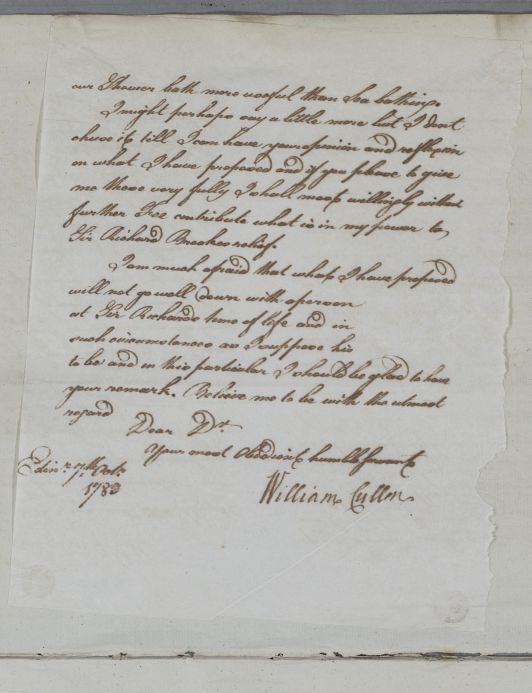 our Shower bath more useful than Sea bathing.
I might perhaps say a little more but I dont
chuse it till I can have your opinion and reflexion
on what I have proposed and if you please to give
me these very fully I shall most willingly without
further Fee contribute what is in my power to
Sir Richard relief.
I am much afraid that what I have proposed
will not go well down with a person
at Sir Richards time of life and in
such circumstances as I suppose his
to be and in this particular I should be glad to have
your remark. Believe me to be with the utmost
regard
Dear Dr.
Your most Obedient humble Servant
William Cullen
Edinr. 7th Octr.
1783